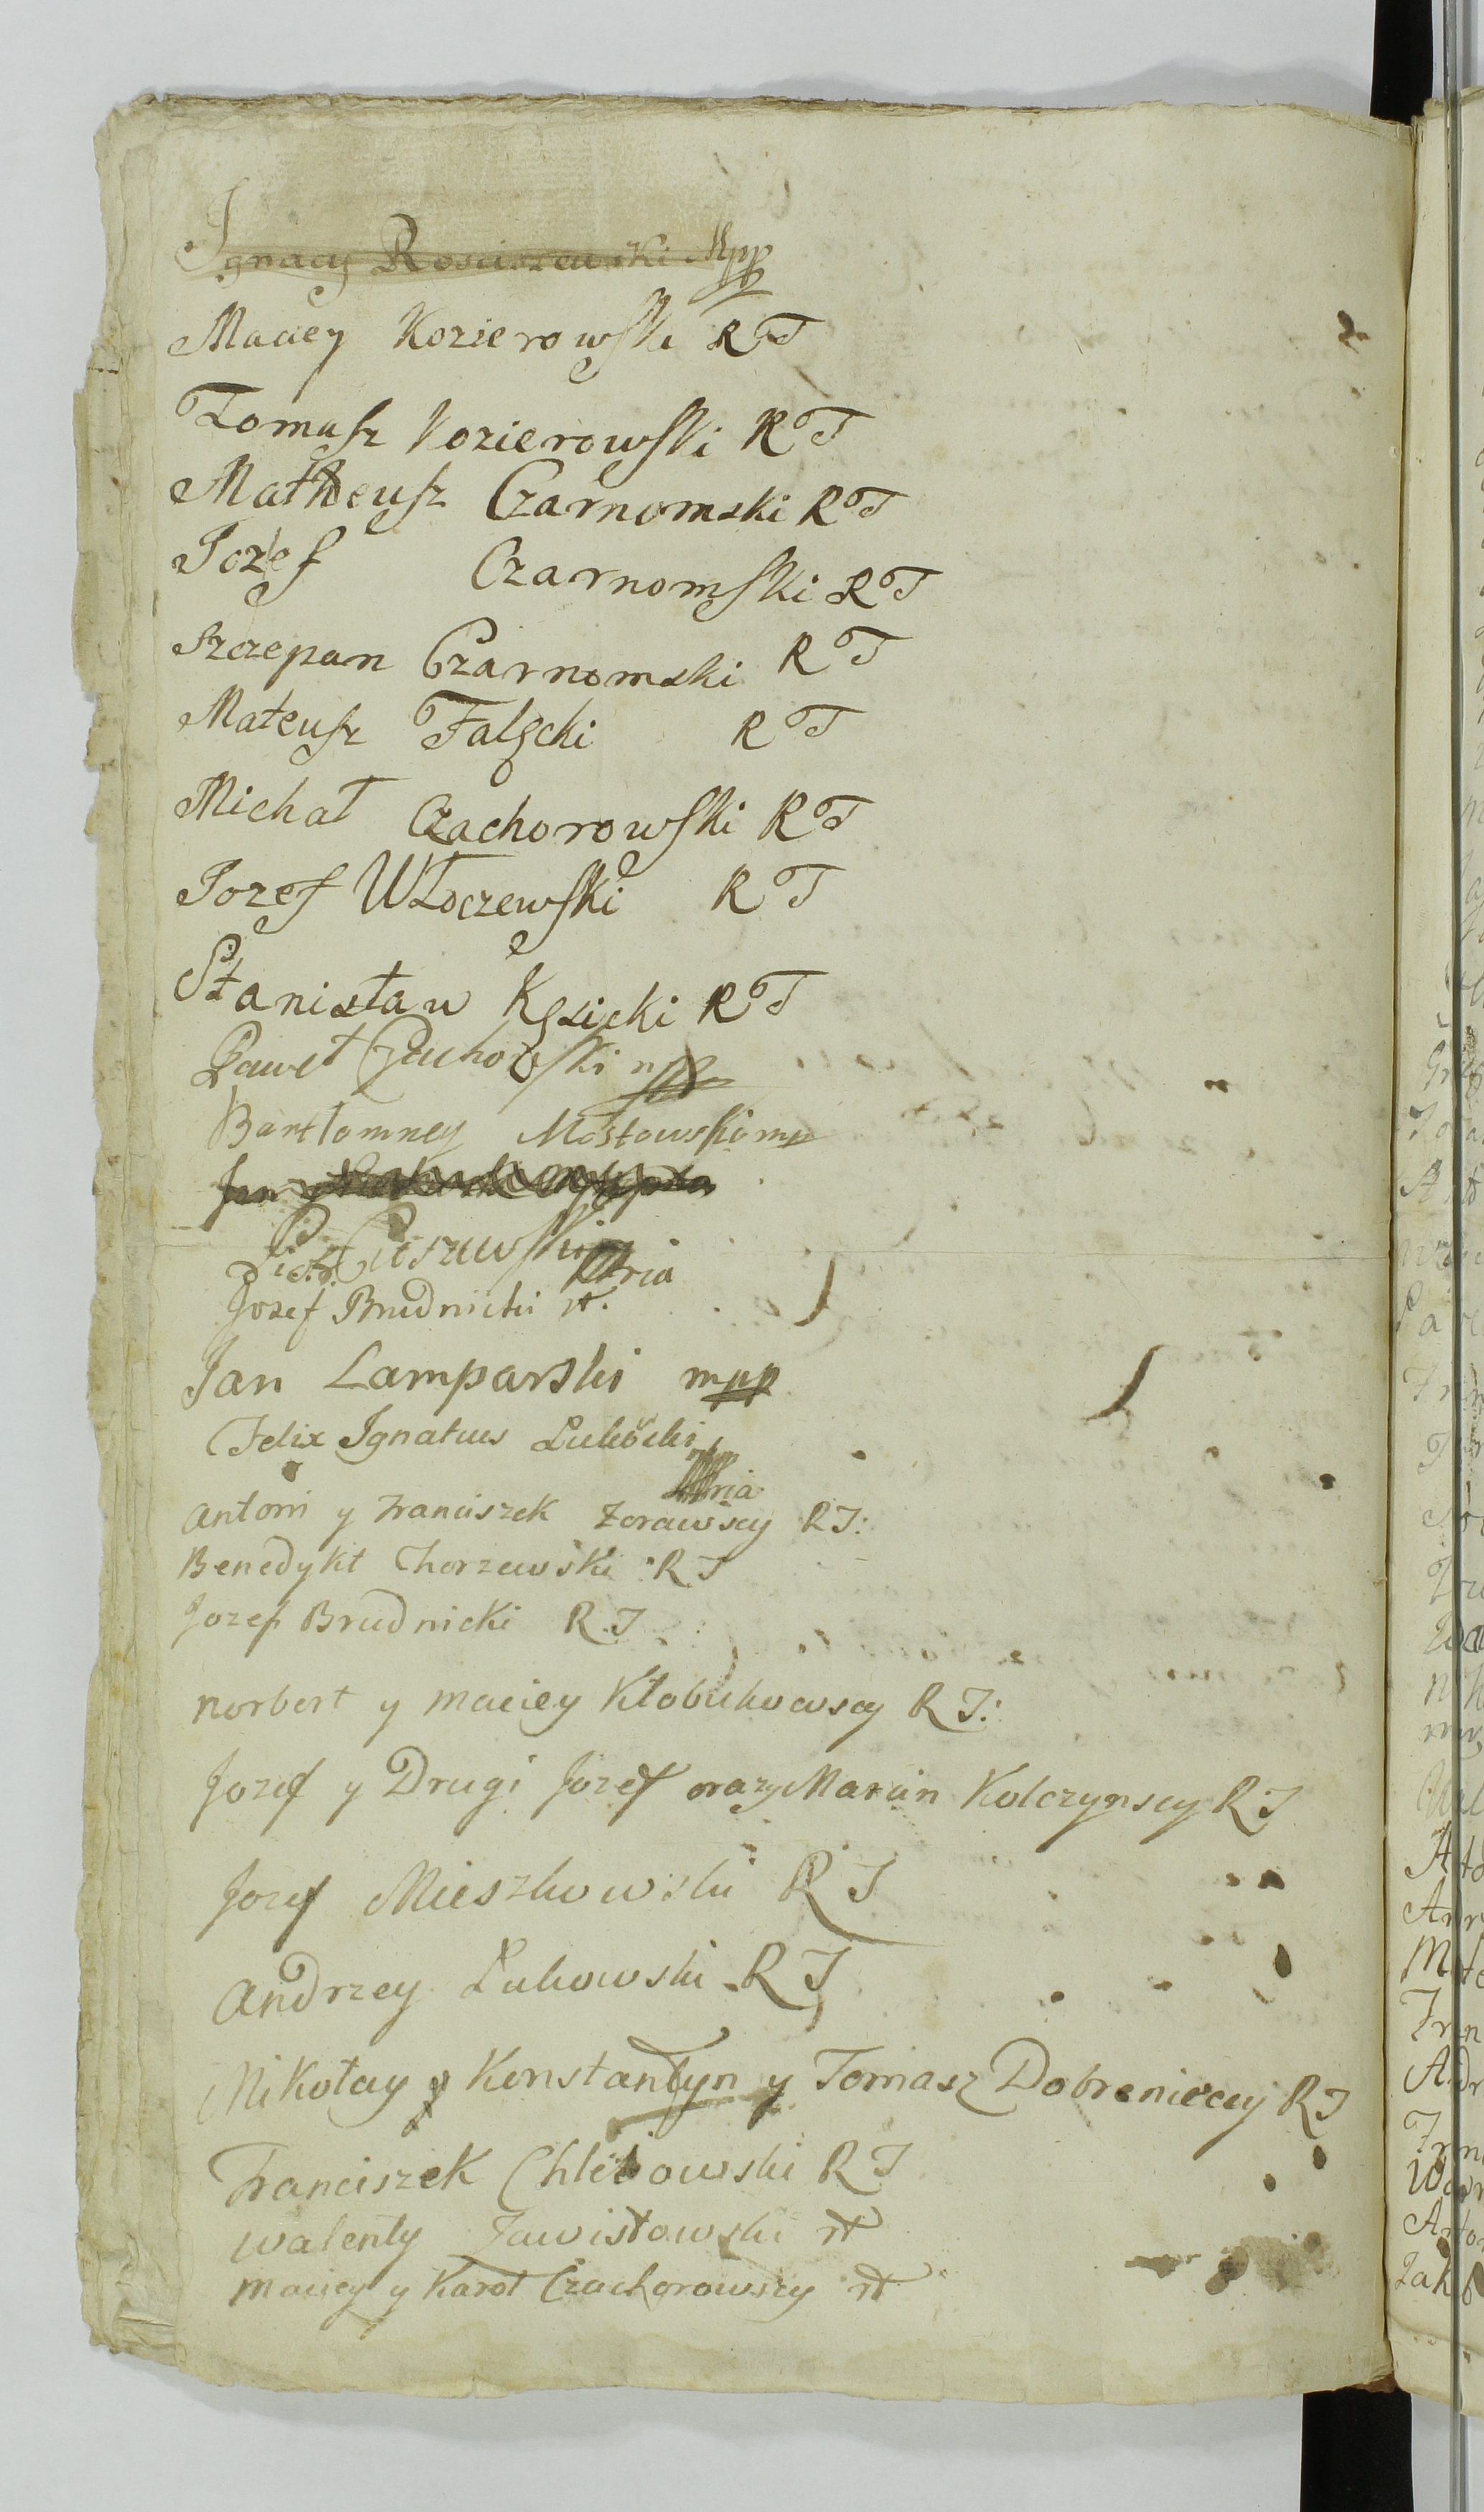 Ignacy Rosciszewski Mpp
Maciey Kozierowski RT
Tomasz Kozierowski RT
Matheusz Czarnomski RT
Jozef Czarnomski RT
Szczepan Czarnomski RT
Mateusz Falęcki RT
Michał Czachorowski RT
Jozef Włoczewski RT
Stanisław Kęsicki RT
Paweł
Bartłomney Mostowski mp
Jan
Piotr
Jozef Brudnicki rt.
Jan Lamparski mpp
Felix Ignatius
Antoni y Franciszek Zorawscy RT:
Benedykt Chorzewski RT
Jozef Brudnicki R.T
Norbert y Maciey Kłobukowscy RT:
Jozef y Drugi Jozef oraz Marcin Kolczynscy RT
Jozef Mieszkowski RT
Andrzey Łukowski RT
Mikołay y Konstantyn y Tomasz Dobreniccy RT
Franciszek Chlebowski RT
Walenty Zawistowski rt
Maciey y Karol Czachorowscy rt